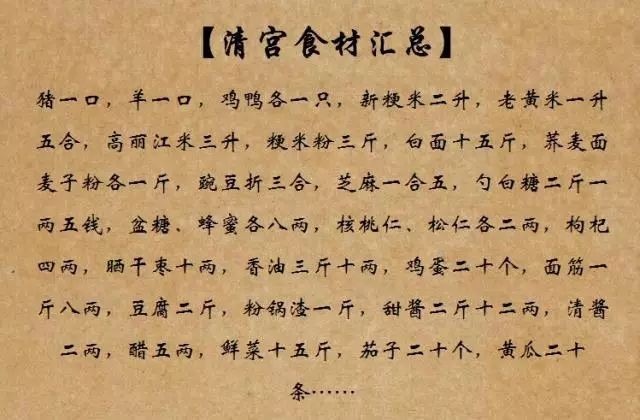 【清宫食材汇总】
猪一口，羊一口，鸡鸭各一只，新粳米二升，老黄米一升
五合，高丽江米三升，粳米粉三斤，白面十五斤，荞麦面
麦子粉各一斤，豌豆折三合，芝麻一合五，勺白糖二斤一
两五钱，盆糖、蜂蜜各八两，核桃仁、松仁各二两，枸杞
四两，晒干枣十两，香油三斤十两，鸡蛋二十个，面筋一
斤八两，豆腐二斤，粉锅渣一斤，甜酱二斤十二两，清酱
二两，醋五两，鲜菜十五斤，茄子二十个，黄瓜二十
条……